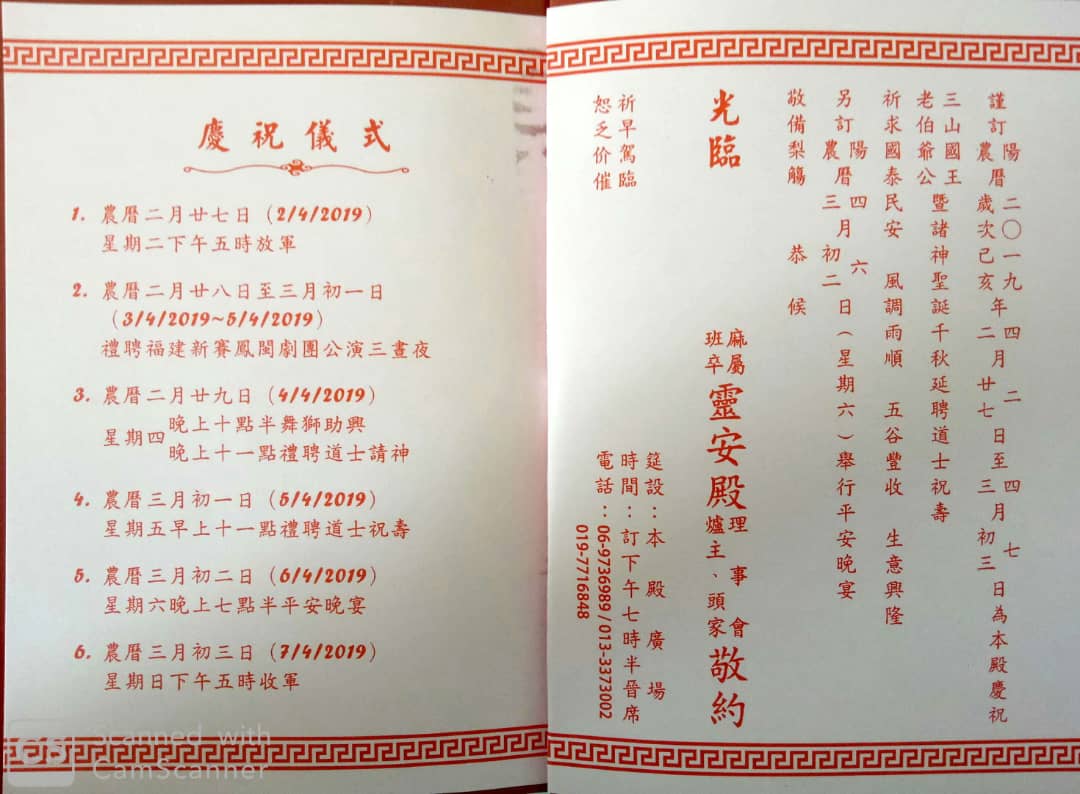 慶祝儀式
1. 農曆二月廿七日（2/4/2019）
星期二下午五時放軍
2. 農曆二月廿八日至三月初一日
（3/4/2019~5/4/2019）
禮聘福建新賽鳳閩劇團公演三晝夜
3. 農曆二月廿九日（4/4/2019）
星期四 晚上十點半舞獅助興
晚上十一點禮聘道士請神
4. 農曆三月初一日（5/4/2019）
星期五早上十一點禮聘道士祝壽
5. 農曆三月初二日（6/4/2019）
星期六晚上七點半平安晚宴
6. 農曆三月初三日（7/4/2019）
星期日下午五時收軍
謹訂 陽農曆 二〇一九 歲次己亥 年 四月二 二月廿七 日至 四月七 三月初三 日為本殿慶祝
三山國王 老伯爺公 暨諸神聖誕千秋延聘道士祝壽
祈求國泰民安 風調雨順 五谷豐收 生意興隆
另訂 陽農曆 四月六 三月初二 日（星期六）舉行平安晚宴
敬備梨觴 恭候
光臨
麻屬班卒 靈安殿 理事會 爐主、頭家 敬約
祈早駕臨
恕乏价催
筵設：本殿廣場
時間：訂下午七時半晉席
電話：06-9736989 / 013-3373002
019-7716848
CS Scanned with
CamScanner